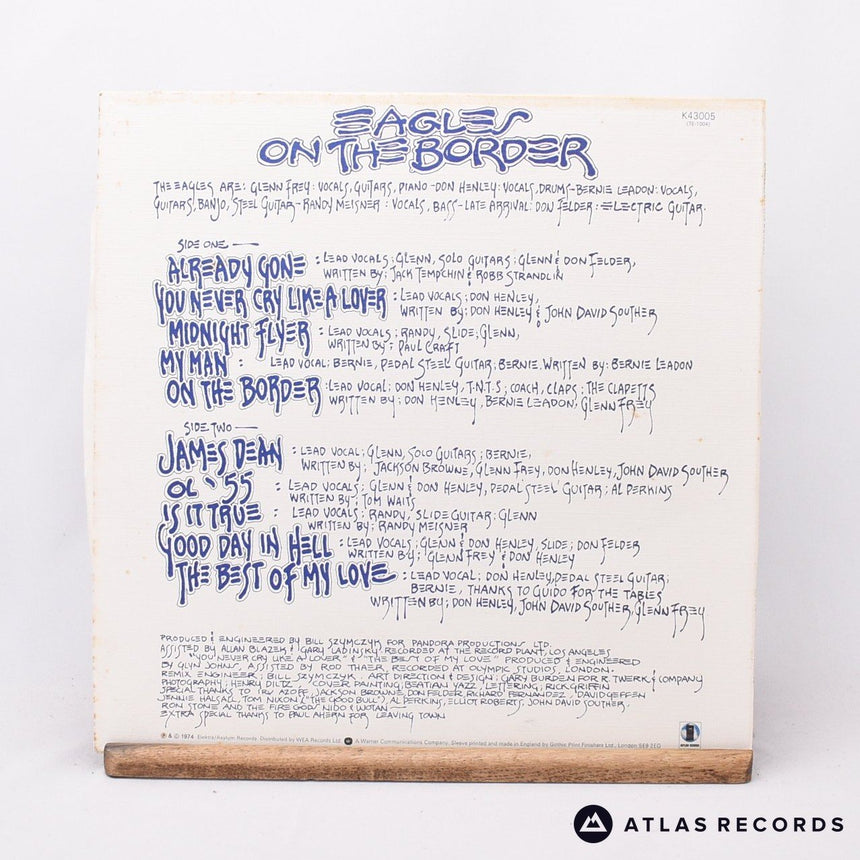 EAGLES
ON THE BORDER
K43005
(7E-1004)
THE EAGLES ARE: GLENN FREY: VOCALS, GUITARS, PIANO-DON HENLEY: VOCALS, DRUMS-BERNIE LEADON: VOCALS,
GUITARS, BANJO, STEEL GUITAR-RANDY MEISNER: VOCALS, BASS-LATE ARRIVAL: DON FELDER: ELECTRIC GUITAR.
SIDE ONE —
ALREADY GONE : LEAD VOCALS; GLENN, SOLO GUITARS; GLENN & DON FELDER,
WRITTEN BY; JACK TEMPCHIN & ROBB STRANDLIN
YOU NEVER CRY LIKE A LOVER : LEAD VOCALS; DON HENLEY,
WRITTEN BY; DON HENLEY & JOHN DAVID SOUTHER
MIDNIGHT FLYER : LEAD VOCALS; RANDY, SLIDE; GLENN,
WRITTEN BY; PAUL CRAFT
MY MAN : LEAD VOCAL; BERNIE, PEDAL STEEL GUITAR; BERNIE, WRITTEN BY: BERNIE LEADON
ON THE BORDER : LEAD VOCAL; DON HENLEY, T.N.T.S; COACH, CLAPS; THE CLAPETTS
WRITTEN BY; DON HENLEY, BERNIE LEADON, GLENN FREY
SIDE TWO —
JAMES DEAN : LEAD VOCAL; GLENN, SOLO GUITARS; BERNIE,
WRITTEN BY; JACKSON BROWNE, GLENN FREY, DON HENLEY, JOHN DAVID SOUTHER
OL '55 : LEAD VOCALS; GLENN & DON HENLEY, PEDAL STEEL GUITAR; AL PERKINS
WRITTEN BY; TOM WAITS
IS IT TRUE : LEAD VOCALS; RANDY, SLIDE GUITAR: GLENN
WRITTEN BY; RANDY MEISNER
GOOD DAY IN HELL : LEAD VOCALS; GLENN & DON HENLEY, SLIDE; DON FELDER
WRITTEN BY; GLENN FREY & DON HENLEY
THE BEST OF MY LOVE : LEAD VOCAL; DON HENLEY, PEDAL STEEL GUITAR;
BERNIE, THANKS TO GUIDO FOR THE TABLES
WRITTEN BY; DON HENLEY, JOHN DAVID SOUTHER, GLENN FREY
PRODUCED & ENGINEERED BY BILL SZYMCZYK FOR PANDORA PRODUCTIONS LTD.
ASSISTED BY ALLAN BLAZEK & GARY LADINSKY, RECORDED AT THE RECORD PLANT, LOS ANGELES
"YOU NEVER CRY LIKE A LOVER" & "THE BEST OF MY LOVE" PRODUCED & ENGINEERED
BY GLYN JOHNS, ASSISTED BY ROD THAER, RECORDED AT OLYMPIC STUDIOS, LONDON.
REMIX ENGINEER; BILL SZYMCZYK. ART DIRECTION & DESIGN; GARY BURDEN FOR R. TWERK & COMPANY
PHOTOGRAPHY; HENRY DILTZ. COVER PAINTING; BEATIAN YAZZ, LETTERING; RICK GRIFFIN
SPECIAL THANKS TO IRV AZOFF, JACKSON BROWNE, DON FELDER, RICHARD FERNANDEZ, DAVID GEFFEN
JENNIE HALSALL, TOM NIXON ("THE GOOD BULL"), AL PERKINS, ELLIOT ROBERTS, JOHN DAVID SOUTHER,
RON STONE AND THE FIRE GODS NIDO & WOTAN —
EXTRA SPECIAL THANKS TO PAUL AHERN FOR LEAVING TOWN
℗ & © 1974 Elektra/Asylum Records Distributed by WEA Records Ltd. A Warner Communications Company. Sleeve printed and made in England by Gothic Print Finishers Ltd., London SE8 2EG
ATLAS RECORDS